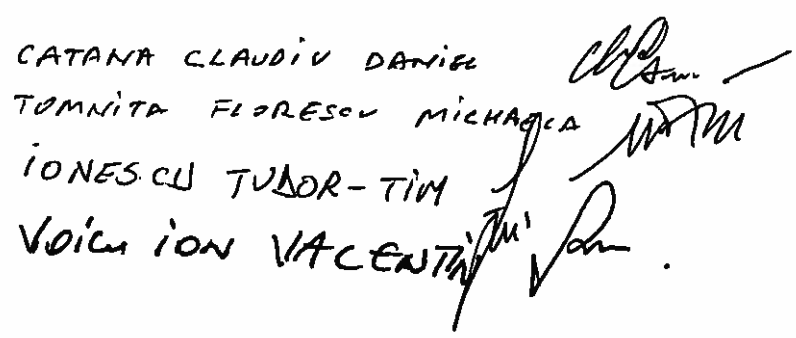 CATANA CLAUDIU DANIEL
TOMNITA FLORESCU MICHAELA
IONESCU TUDOR-TIM
VOICU ION VALENTIN